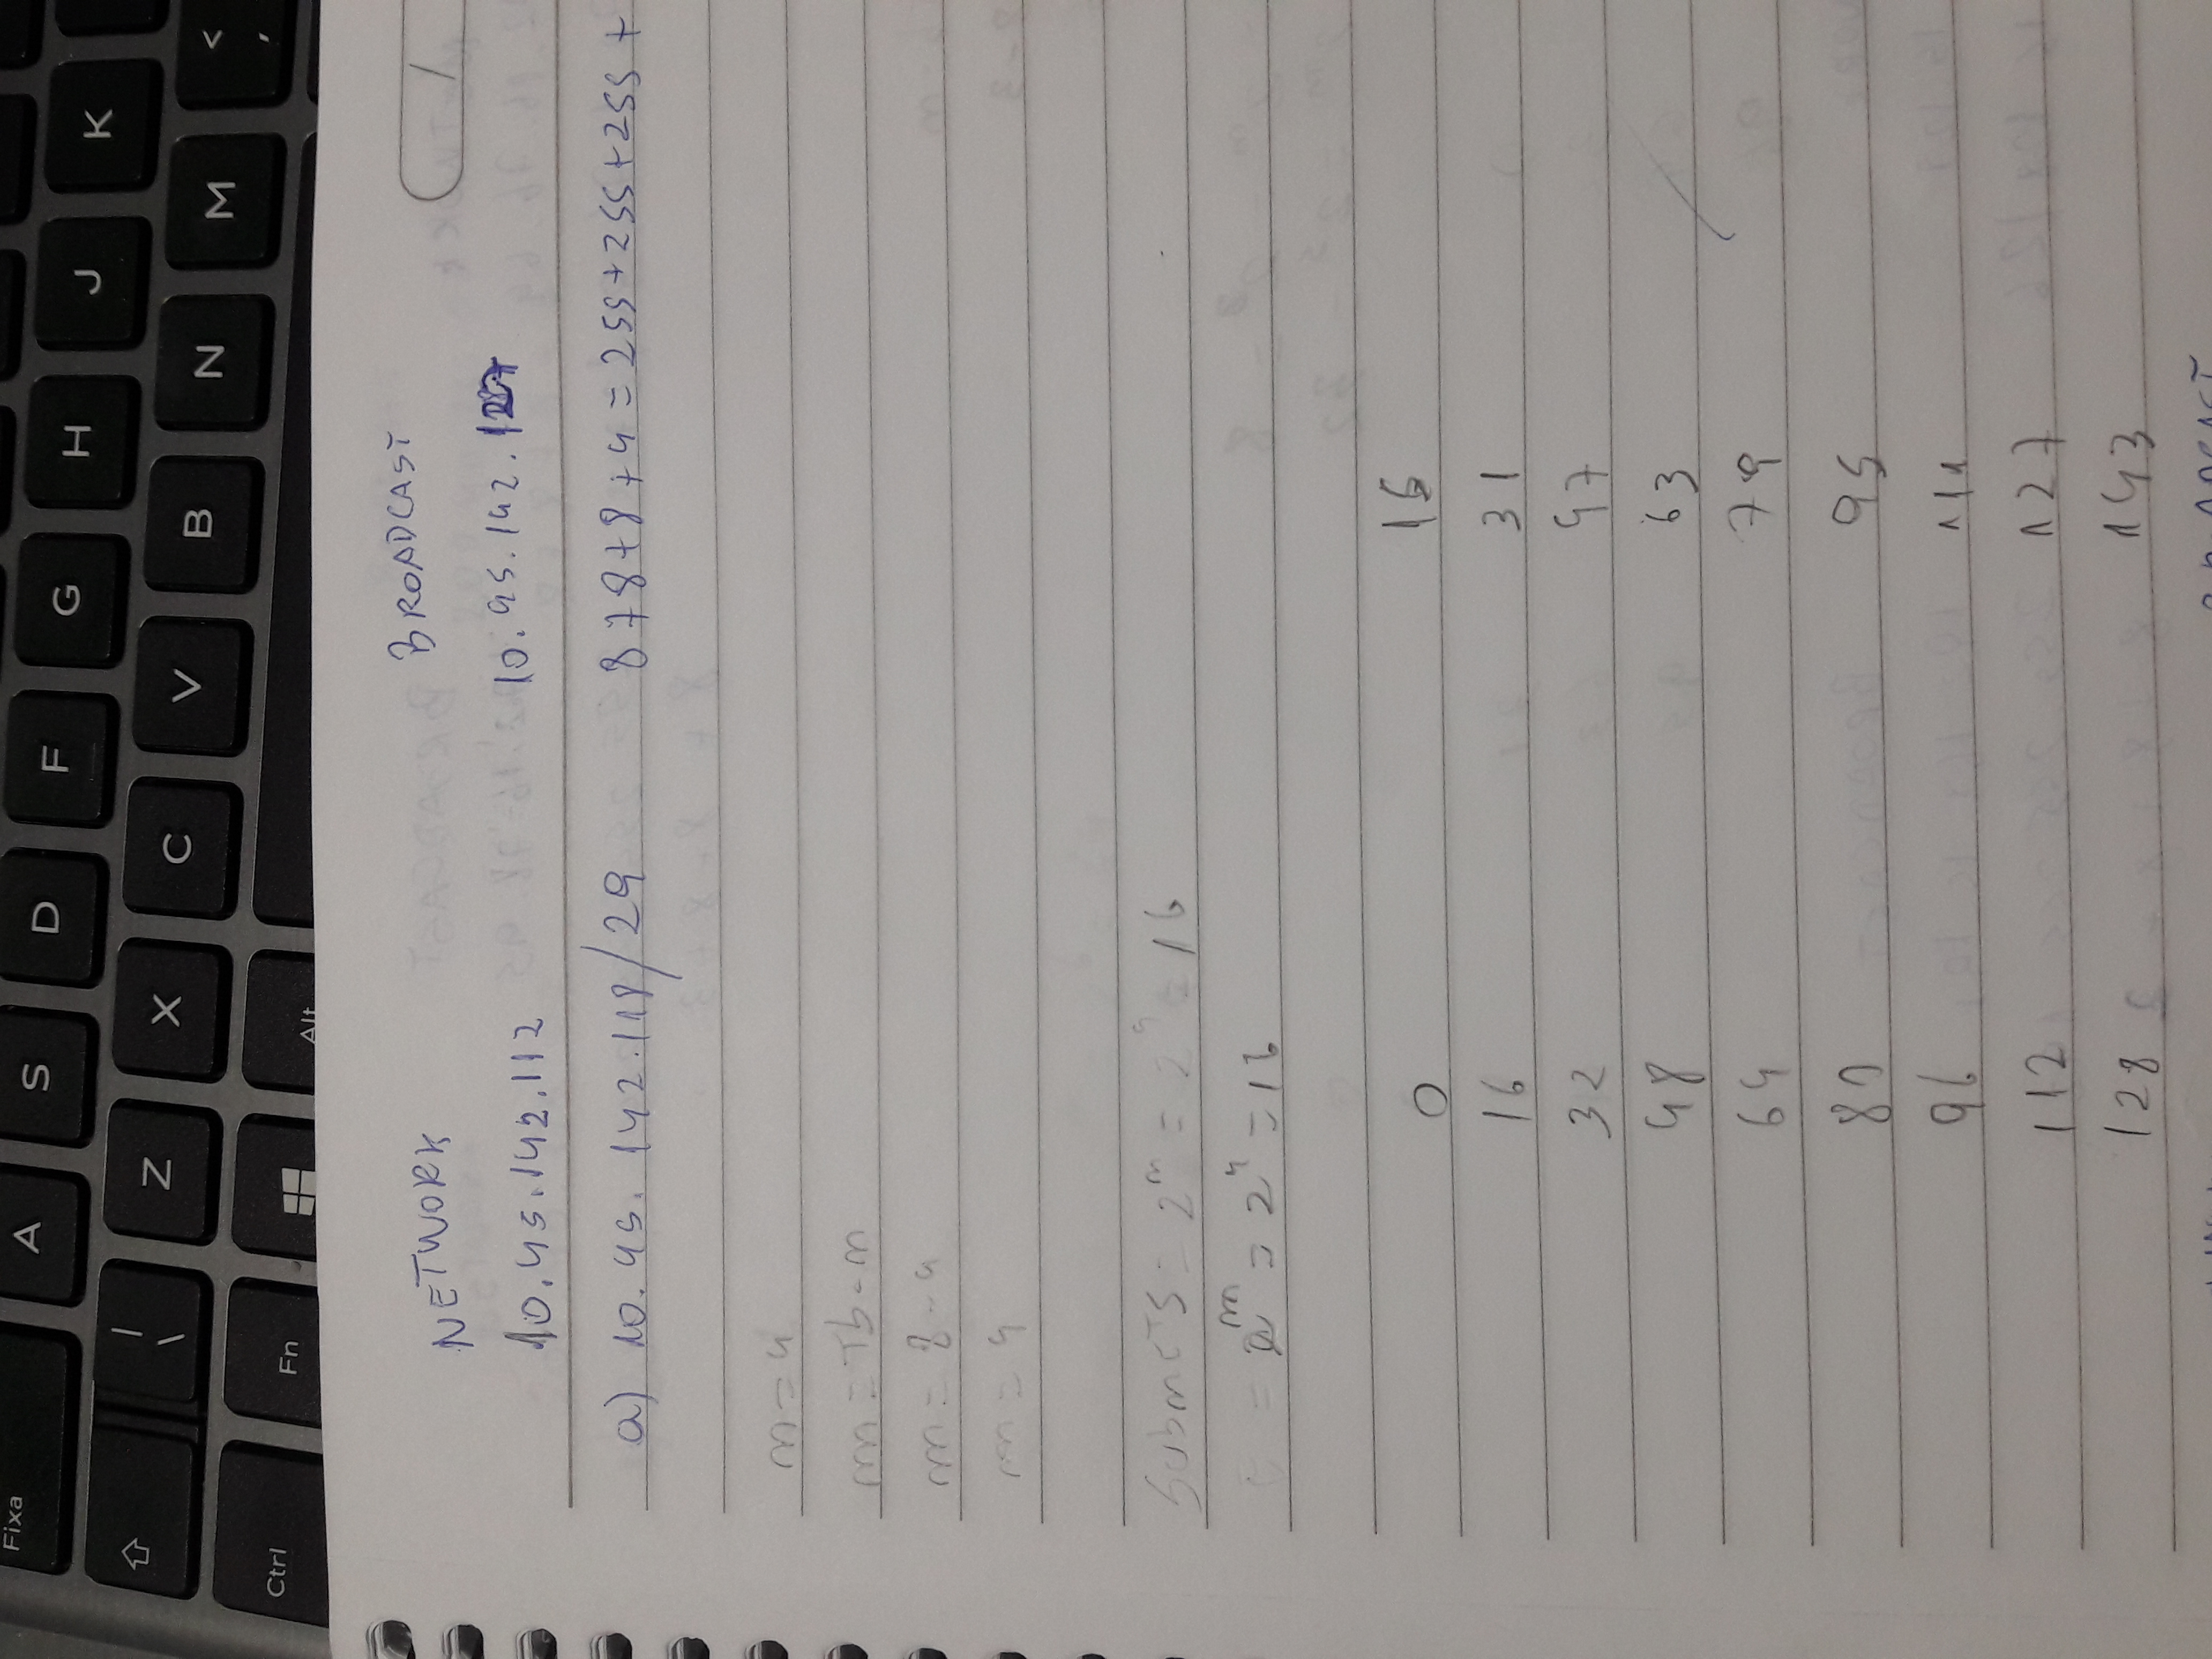 Fixa A S D F G H J K
| \ Z X C V B N M < ,
Ctrl Fn Alt
NETWORK BROADCAST
10.45.142.112 10.45.142.127
a) 10.45.142.118/29 8+8+8+4=255+255+255+
n=4
m=Tb-n
m=8-4
m=4
Subnets=2^n=2^4=16
=2^m=2^4=16
0 15
16 31
32 47
48 63
64 79
80 95
96 111
112 127
128 143